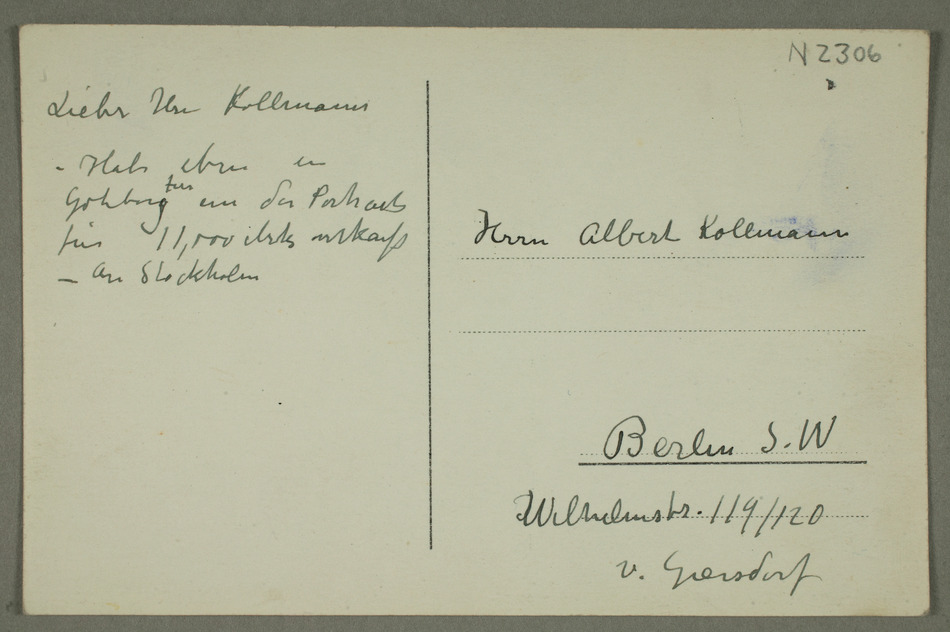 N 2306
Lieber Herr Kollmann
- Habe eben in
Gøteborg für
für 11,000
- An Stockholm
Herrn Albert Kollmann
Berlin S.W
Wilhelmstr. 119/120
v. Giersdorf